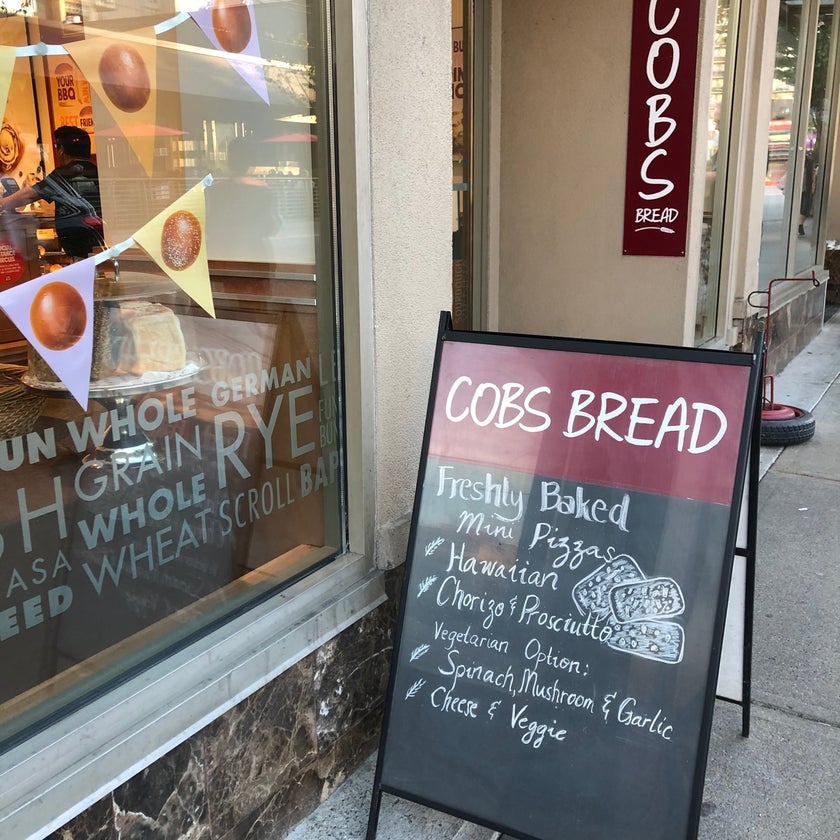 YOUR
BBQ
COBS
BREAD
COBS BREAD
Freshly Baked
Mini Pizzas
Hawaiian
Chorizo & Prosciutto
Vegetarian Option:
Spinach, Mushroom & Garlic
Cheese & Veggie
UN WHOLE GERMAN
GRAIN RYE
WHOLE
WHEAT SCROLL BAP
ASA
EED